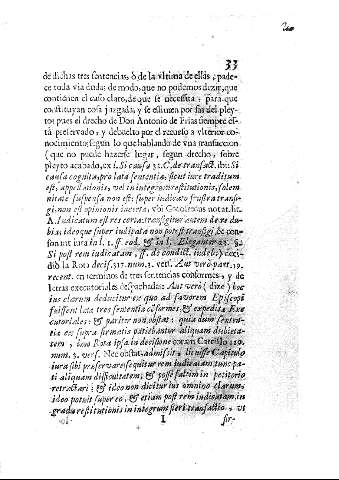 33
de dichas tres sentencias, ò de la vltima de ellas, padece toda via duda; de modo, que no podemos dezir, que
contienen el caso claro, de que se necessita, para que
constituyan cosa juzgada; y se estimen por fas del pleytos
pues el drecho de Don Antonio de Frias siempre està
preservado, y debuelto por el recurso a vlterior conocimiento
segun lo que hablando de vna transaccion
(que no puede hazerse lugar, segun drecho, sobre
pleyto acabado, ex l. Si causa 32. C. de transact. ibi: Si
causa cognita, prolata sententia, sicut iure traditum
est; appellationis, vel in integrum restitutionis, solemnitate
suspensa non est; super iudicato frustra transigi
non est opinionis incerta, vbi Gotofredus not. litt.
A. Iudicatum est res certa: transigitur autem de re dubia
; ideoque super iudicata non potest transigi; de consonant
iura in l. 1. ff. eod. & in l. Elegantèr 23. §.
Si post rem iudicatam, ff. de condict. indeb.) consid
la Rota decis. 317. num. 3. vers. Aut verò part. 19.
recent. en terminos de tres sentencias conformes, y de
letras executoriales despachadas: Aut verò (dize) hoc
ius clarum deducitur ex quo ad favorem Episcopi
fuissent lata tres sententia cõformes, & expedita Executoriales
: & pariter non obstat: quia hæ sententiæ
ex supra firmatis patiebantur aliquam dubietatem
, ideo Rota ipsa in decisione coram Carrillo 119.
num. 3. vers. Nec obstat, admisit, licuisse Capitulo
iura sibi præservare sequitur rem iudicatam tunc pati
aliquam difficultatem; & posse saltim in petitorio
retractari; & ideo non dicitur ius omnino clarum,
ideo potuit super eo, & etiam post rem iudicatam, in
gradu restitutionis in integrum fieri transactio, vt
I
sir-